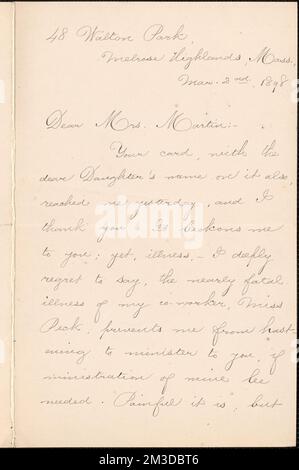 48 Walton Park
Melrose Highlands, Mass.
Mar. 2nd, 1898
Dear Mrs. Martin:-
Your card, with the
dear Daughter's name on it also,
reached me yesterday, and I
thank you. It beckons me
to you; yet, illness,- I deeply
regret to say, the nearly fatal
illness of my co-worker, Miss
Peck, prevents me from hast-
ening to minister to you, if
ministration of mine be
needed. Painful it is, but
alamy
Image ID: 2M3DBT6
www.alamy.com